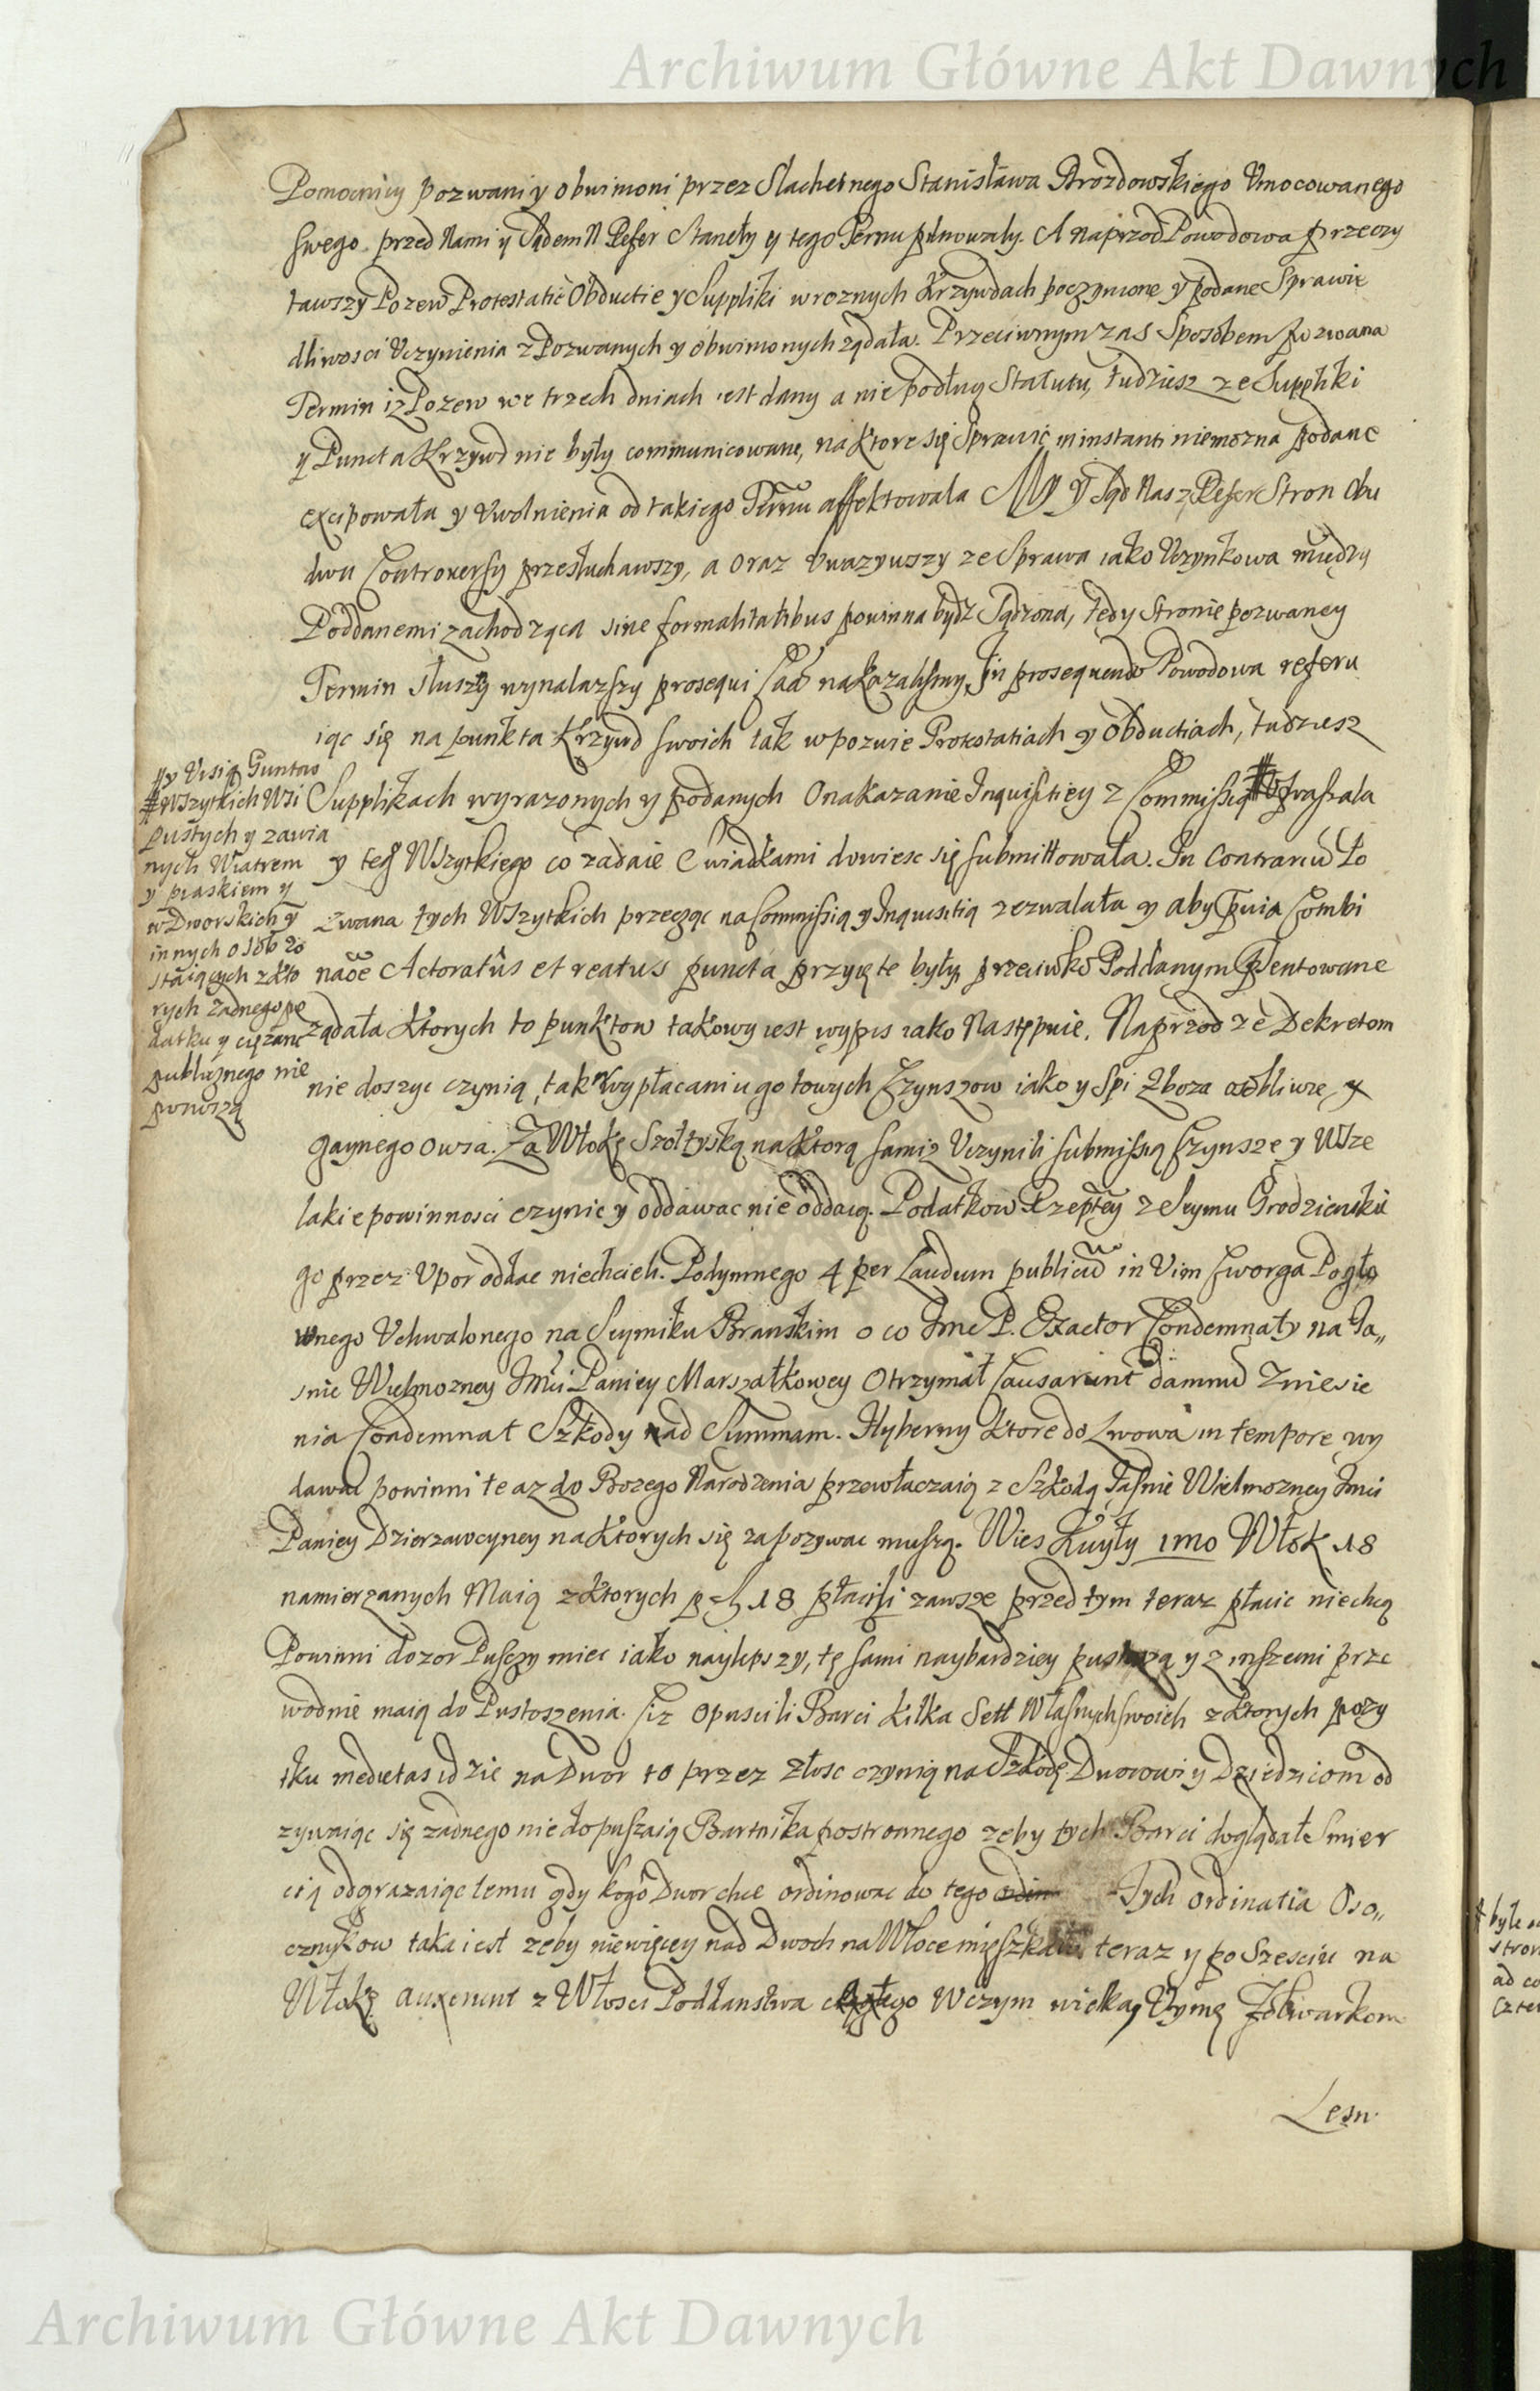 Archiwum Główne Akt Dawnych
Pomocnicy pozwani y obwinioni przez Slachetnego Stanisława Drozdowskiego Umocowanego
swego przed Nami y Sądem N. Refer Stanęły y tego Termu pilnowały. A naprzod Powodowa przeczy
tawszy Pozew Protestatie Obductie y Suppliki w roznych Krzywdach poczynione y podane Sprawie
dliwosci Uczynienia z Pozwanych y obwinionych ządała. Przeciwnym zas Sposobem pozwana
Termin iz Pozew we trzech dniach iest dany a nie podług Statutu, tudziesz ze Suppliki
y Puncta Krzywd nie były communicowane, na ktore się Sprawić in instanti niemozna podane
excipowała y Uwolnienia od takiego Termu affektowała My y Sąd Nasz Refer Stron obu
dwu Controversy przesłuchawszy, a oraz Uwazywszy ze Sprawa iako Uczynkowa między
Poddanemi zachodząca sine formalitatibus powinna bydz Sądzona, tedy Stronie pozwaney
Termin słuszny wynalazszy prosequi nakazalismy, In prosequendo Powodowa referu
iąc się na punkta Krzywd swoich tak w pozwie Protestatiach y obductiach, tudziesz
Supplikach wyrazonych y podanych o nakazanie Inquisitiey z Commissią # upraszała
y teg Wszytkiego co zadaie Swiadkami dowiesc się submittowała. In Contrariū Po
zwana tych Wszytkich przecząc na Commissią y Inquisitią zezwalała y aby Combi
naōe Actoratûs et reatus puncta przyięte były przeciwko Poddanym
ządała ktorych to punktow takowy iest wypis iako Następuie. Naprzod ze Dekretom
nie doszyc czynią, tak w wypłacaniu gotowych Czynszow iako y Spi Zboza y
gaynego owsa. Za Włokę Szołtyską na ktorą sami Uczynili submissią Czynsze y Wsze
lakie powinnosci czynic y oddawac nie oddaią. Podatkow Rzeptey z Seymu Grodzienskie
go przez Upor oddac niechcieli. Podymnego 4 per Laudum publicū in Vim Czworga Pogło
wnego Uchwalonego na Seymiku Branskim o co Jmc P. Exactor Condemnaty na Ja„
snie Wielmozney Jmci Paniey Marszałkowey Otrzymał Causarunt damnū Zniesie
nia Condemnat Szkody nad Summam. Hyberny ktore do Lwowa in tempore wy
dawac powinni te az do Bozego Narodzenia przewłaczaią z Szkodą Jasnie Wielmozney Jmci
Paniey Dzierzawcyney na ktorych się zapozywac muszą. Wies Kuyły 1mo Włok 18
namierzanych Maią z ktorych 18 płacili zawsze przed tym teraz płacic niechcą
Powinni dozor Puszczy miec iako naylepszy, tę sami naybardziey pustoszą y z inszemi prze
wodnie maią do Pustoszenia. Ciz Opuscili Barci kilka Sett Własnych swoich z ktorych pozy
tku medietas idzie na Dwor to przez złosc czynią na Szkodę Dworowi y Dziedzicom od
zywaiąc się zadnego nie dopuszaią Bartnika postronnego zeby tych Barci doglądał Smier
cią odgrazaiąc temu gdy kogo Dwor chce ordinowac do tego Tych ordinatia Oso„
cznikow taka iest zeby niewięcey nad Dwoch na Włoce mieszkało teraz y po Szesciu na
Włokę auxerunt z Włosci Poddanstwa w czym wielką Uymę Folwarkom
Lesn.
# y Usią Guntow
# Wszytkich Wsi
pustych y zawia
nych Wiatrem
y piaskiem y
w Dworskich y
innych osob zo
staiących z kto
rych zadnego po
datku y cięzaru
publicznego nie
ponoszą
Archiwum Główne Akt Dawnych